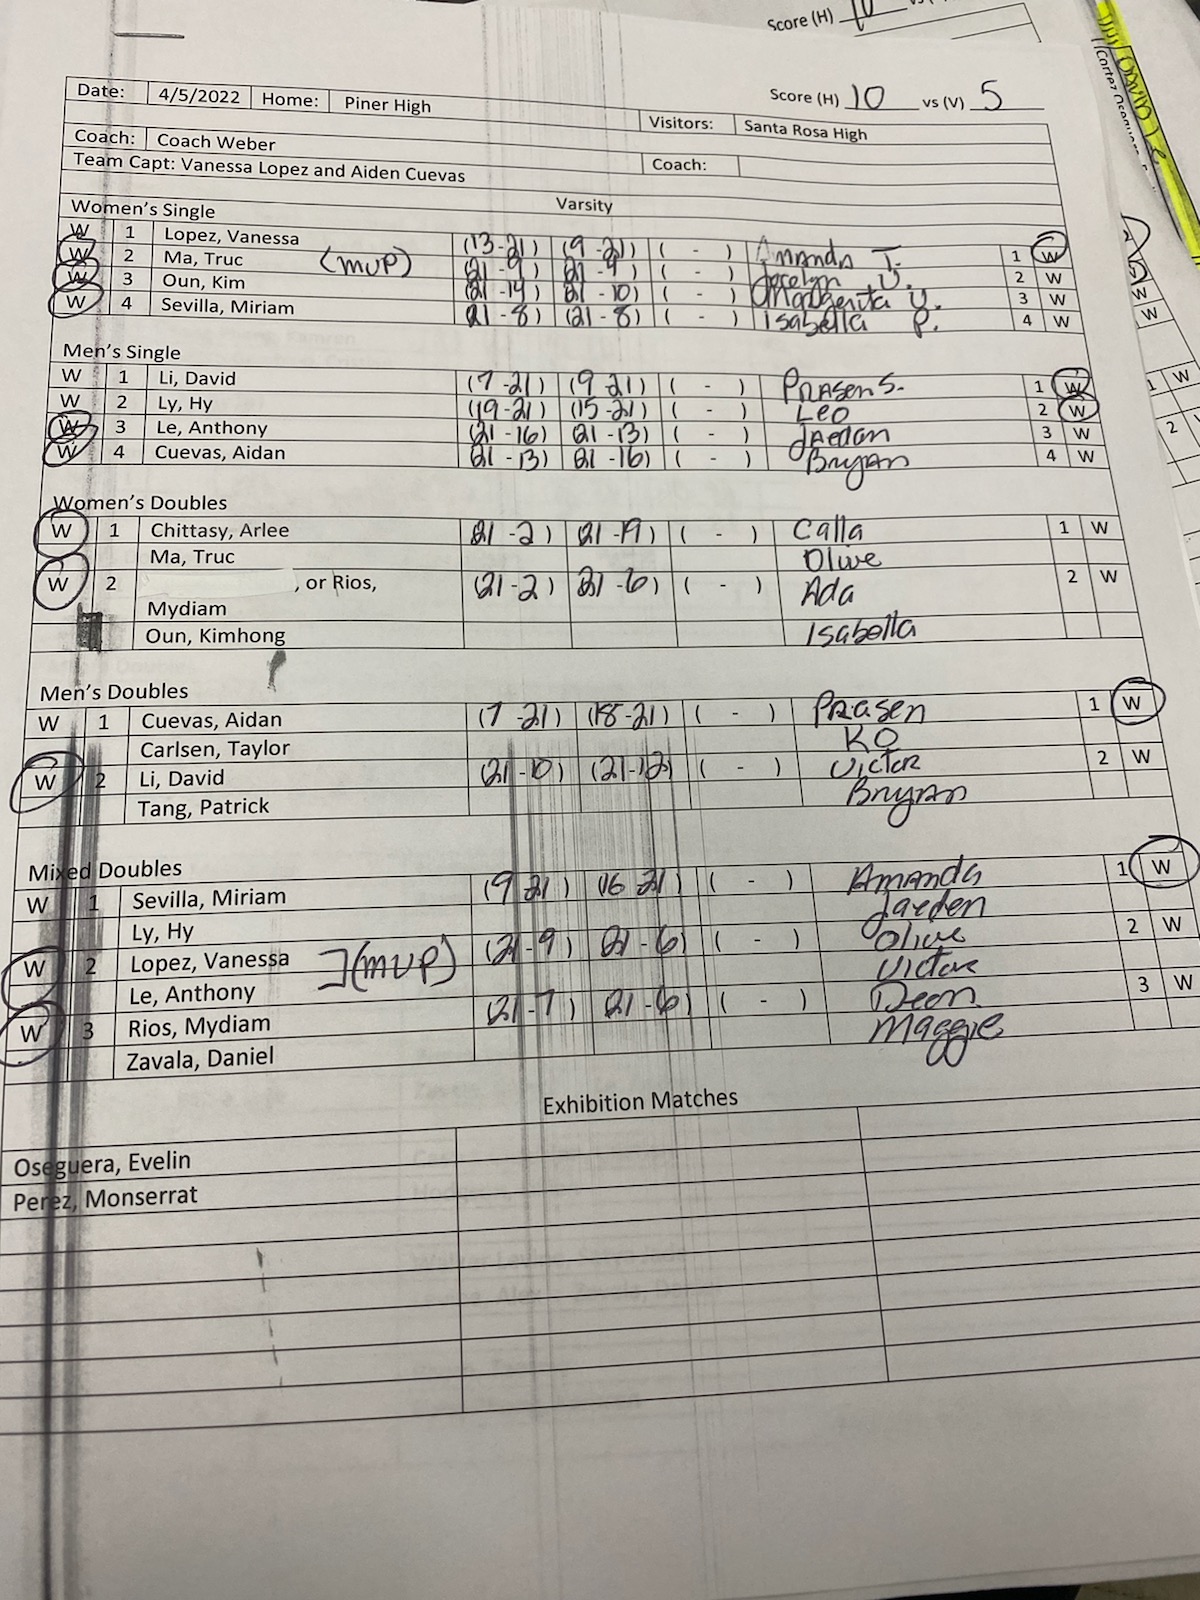 Score (H) 10 vs
Date: 4/5/2022 Home: Piner High Score (H) 10 vs (V) 5
Visitors: Santa Rosa High
Coach: Coach Weber Coach:
Team Capt: Vanessa Lopez and Aiden Cuevas
Varsity
Women's Single
W 1 Lopez, Vanessa (13-21) (9-21) ( - ) Amanda T. 1 W
W 2 Ma, Truc (MVP) (21-9) (21-9) ( - ) Jocelyn V. 2 W
W 3 Oun, Kim (21-14) (21-10) ( - ) Margherita Y. 3 W
W 4 Sevilla, Miriam (21-8) (21-8) ( - ) Isabella P. 4 W
Men's Single
W 1 Li, David (7-21) (9-21) ( - ) Prasen S. 1 W
W 2 Ly, Hy (19-21) (15-21) ( - ) Leo 2 W
W 3 Le, Anthony (21-16) (21-13) ( - ) Jaedan 3 W
W 4 Cuevas, Aidan (21-13) (21-16) ( - ) Bryan 4 W
Women's Doubles
W 1 Chittasy, Arlee (21-2) (21-19) ( - ) Calla 1 W
Ma, Truc Olive
W 2 , or Rios, (21-2) (21-6) ( - ) Ada 2 W
Mydiam
Oun, Kimhong Isabella
Men's Doubles
W 1 Cuevas, Aidan (7-21) (18-21) ( - ) Prasen 1 W
Carlsen, Taylor KO
W 2 Li, David (21-10) (21-12) ( - ) Victor 2 W
Tang, Patrick Bryan
Mixed Doubles
W 1 Sevilla, Miriam (9 21) (16 21) ( - ) Amanda 1 W
Ly, Hy Jaeden
W 2 Lopez, Vanessa (MVP) (21-9) (21-6) ( - ) Olive 2 W
Le, Anthony Victor
W 3 Rios, Mydiam (21-7) (21-6) ( - ) Deon 3 W
Zavala, Daniel Maggie
Exhibition Matches
Oseguera, Evelin
Perez, Monserrat